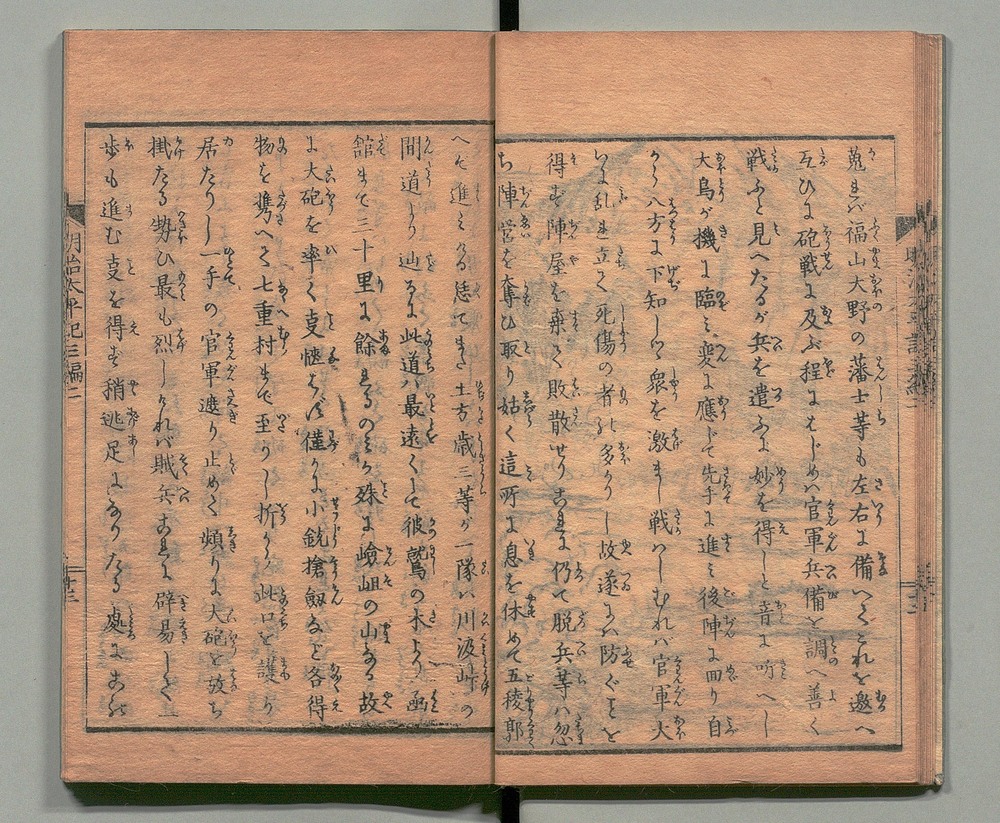 蒐まバ福山大野の藩士等も左右に備へてこれを邀へ
互ひに砲戦に及ぶ程にはじめハ官軍兵備を調へ善く
戦ふと見へたるが兵を遣ふに妙を得しと音に听へし
大鳥が機に臨ミ変に應じて先手に進ミ後陣に回り自
から八方に下知しつゝ衆を激まし戦ハしむれバ官軍大
いに乱れ立て死傷の者も多かりし故遂にハ防ぐことを
得ず陣屋を棄て敗散せり是に仍て脱兵等ハ忽
ち陣営を奪ひ取り姑く這所に息を休めて五稜郭
へぞ進ミける恁てまた土方歳三等が一隊ハ川汲峠の
間道より廻るに此道ハ最遠くして彼鷲の木より函
館まで三十里に餘れるのミか殊に嶮岨の山なる故
に大砲を率く叓愜はず僅かに小銃搶劔など各得
物を携へて七重村まで至りし折から此口を護り
居たりし一手の官軍遮り止めて頻りに大砲を放ち
掛たる勢ひ最も烈しけれバ賊兵これに辟易して一
歩も進む叓を得ず稍逃足になりたる処にこれ
明治太平記三編二
十三